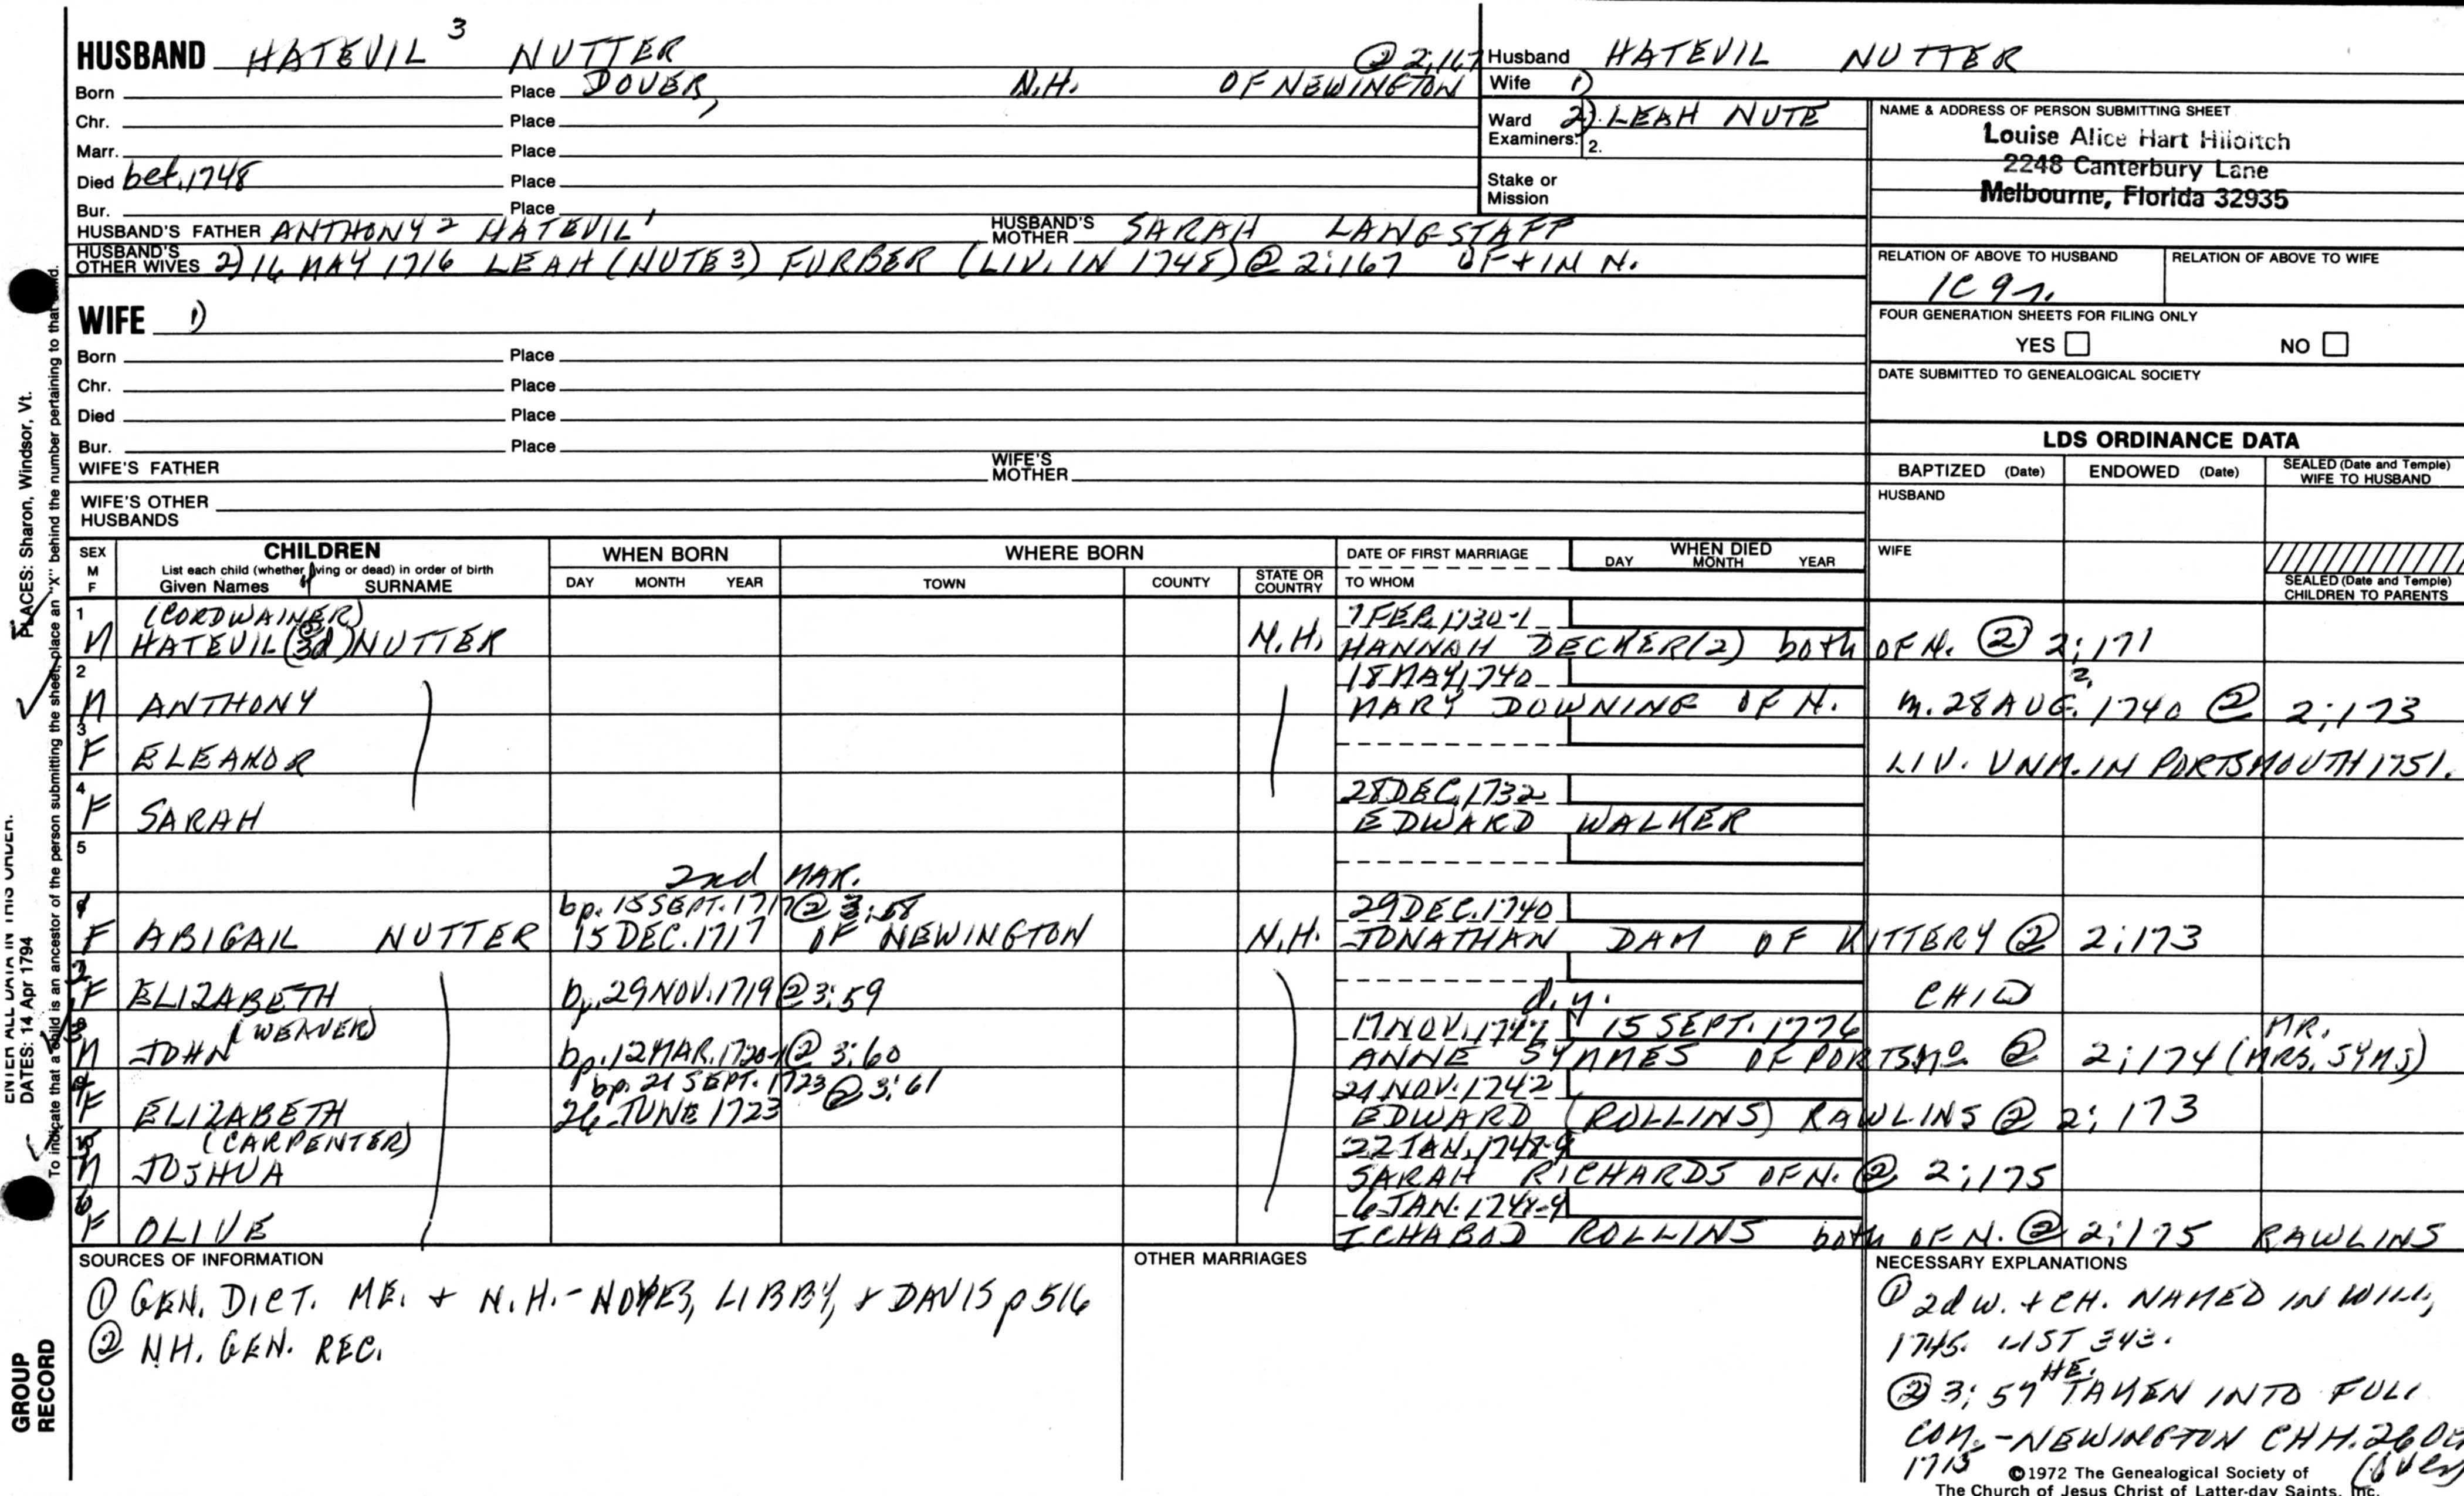 HUSBAND HATEVIL 3 NUTTER @ 2;167
Born Place DOVER, N.H. OF NEWINGTON
Chr. Place
Marr. Place
Died bet. 1748 Place
Bur. Place
HUSBAND'S FATHER ANTHONY 2 HATEVIL 1 HUSBAND'S MOTHER SARAH LANGSTAFF
HUSBAND'S OTHER WIVES 2) 16 MAY 1716 LEAH (NUTE 3) FURBER (LIV. IN 1748) @ 2;167 OF + IN N.
Husband HATEVIL NUTTER
Wife 1)
Ward 2). LEAH NUTE
Examiners: 2.
Stake or Mission
NAME & ADDRESS OF PERSON SUBMITTING SHEET
Louise Alice Hart
2248 Canterbury Lane
Melbourne, Florida 32935
RELATION OF ABOVE TO HUSBAND RELATION OF ABOVE TO WIFE
1C 9r.
FOUR GENERATION SHEETS FOR FILING ONLY
YES NO
DATE SUBMITTED TO GENEALOGICAL SOCIETY
WIFE 1)
Born Place
Chr. Place
Died Place
Bur. Place
WIFE'S FATHER WIFE'S MOTHER
WIFE'S OTHER HUSBANDS
LDS ORDINANCE DATA
BAPTIZED (Date) ENDOWED (Date) SEALED (Date and Temple) WIFE TO HUSBAND
HUSBAND
WIFE
SEALED (Date and Temple) CHILDREN TO PARENTS
SEX M F
CHILDREN
List each child (whether living or dead) in order of birth
Given Names SURNAME
WHEN BORN
DAY MONTH YEAR
WHERE BORN
TOWN COUNTY STATE OR COUNTRY
DATE OF FIRST MARRIAGE
TO WHOM
WHEN DIED
DAY MONTH YEAR
1 (CORDWAINER) 7 FEB. 1730-1
M HATEVIL (3d) NUTTER N.H. HANNAH DECKER (2) both OF N. @ 2;171
2 18 MAY, 1740
M ANTHONY MARY DOWNING OF N. m. 28 AUG.? 1740 @ 2;173
3
F ELEANOR LIV. UNM. IN PORTSMOUTH 1751.
4 28 DEC. 1732
F SARAH EDWARD WALKER
5
2nd MAR.
bp. 15 SEPT. 1717 @ 3;58 29 DEC. 1740
F ABIGAIL NUTTER 15 DEC. 1717 OF NEWINGTON N.H. JONATHAN DAM OF KITTERY @ 2;173
2 F ELIZABETH bp. 29 NOV. 1719 @ 3;59 d.y. CHILD
3 (WEAVER) 17 NOV. 1747 15 SEPT. 1776 MR.
M JOHN bp. 12 MAR. 1720-1 @ 3;60 ANNE SYMMES OF PORTSMO. @ 2;174 (MRS. SYMS)
4 bp. 21 SEPT. 1723 @ 3;61 21 NOV. 1742
F ELIZABETH 26 JUNE 1723 EDWARD (ROLLINS) RAWLINS @ 2;173
5 (CARPENTER) 22 JAN. 1748-9
M JOSHUA SARAH RICHARDS OF N. @ 2;175
6 6 JAN. 1748-9
F OLIVE ICHABOD ROLLINS both OF N. @ 2;175 RAWLINS
SOURCES OF INFORMATION
① GEN. DICT. ME. + N.H. - NOYES, LIBBY, + DAVIS p 516
② NH. GEN. REC.
OTHER MARRIAGES
NECESSARY EXPLANATIONS
① 2d W. + CH. NAMED IN WILL,
1745. LIST 343.
② 3;57 HE. TAKEN INTO FULL
COM. - NEWINGTON CHH. 26
1715 (over)
©1972 The Genealogical Society of
The Church of Jesus Christ of Latter-day Saints, Inc.
PLACES: Sharon, Windsor, Vt.
ENTER ALL DATA IN THIS ORDER.
DATES: 14 Apr 1794
To indicate that a child is an ancestor of the person submitting the sheet, place an "X" behind the number pertaining to that child.
GROUP RECORD